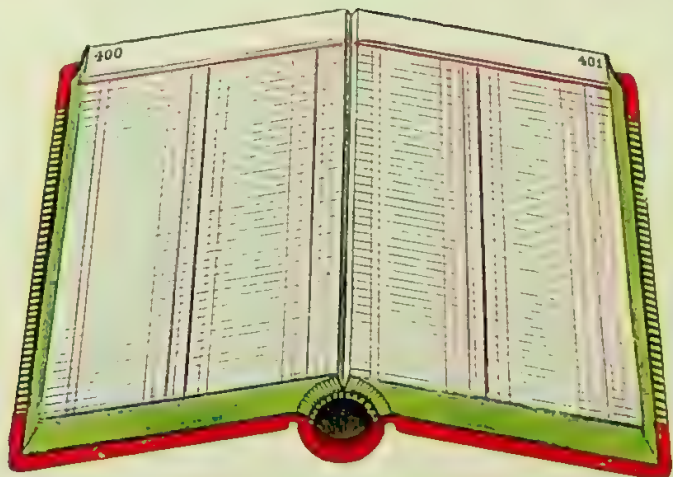 400
401